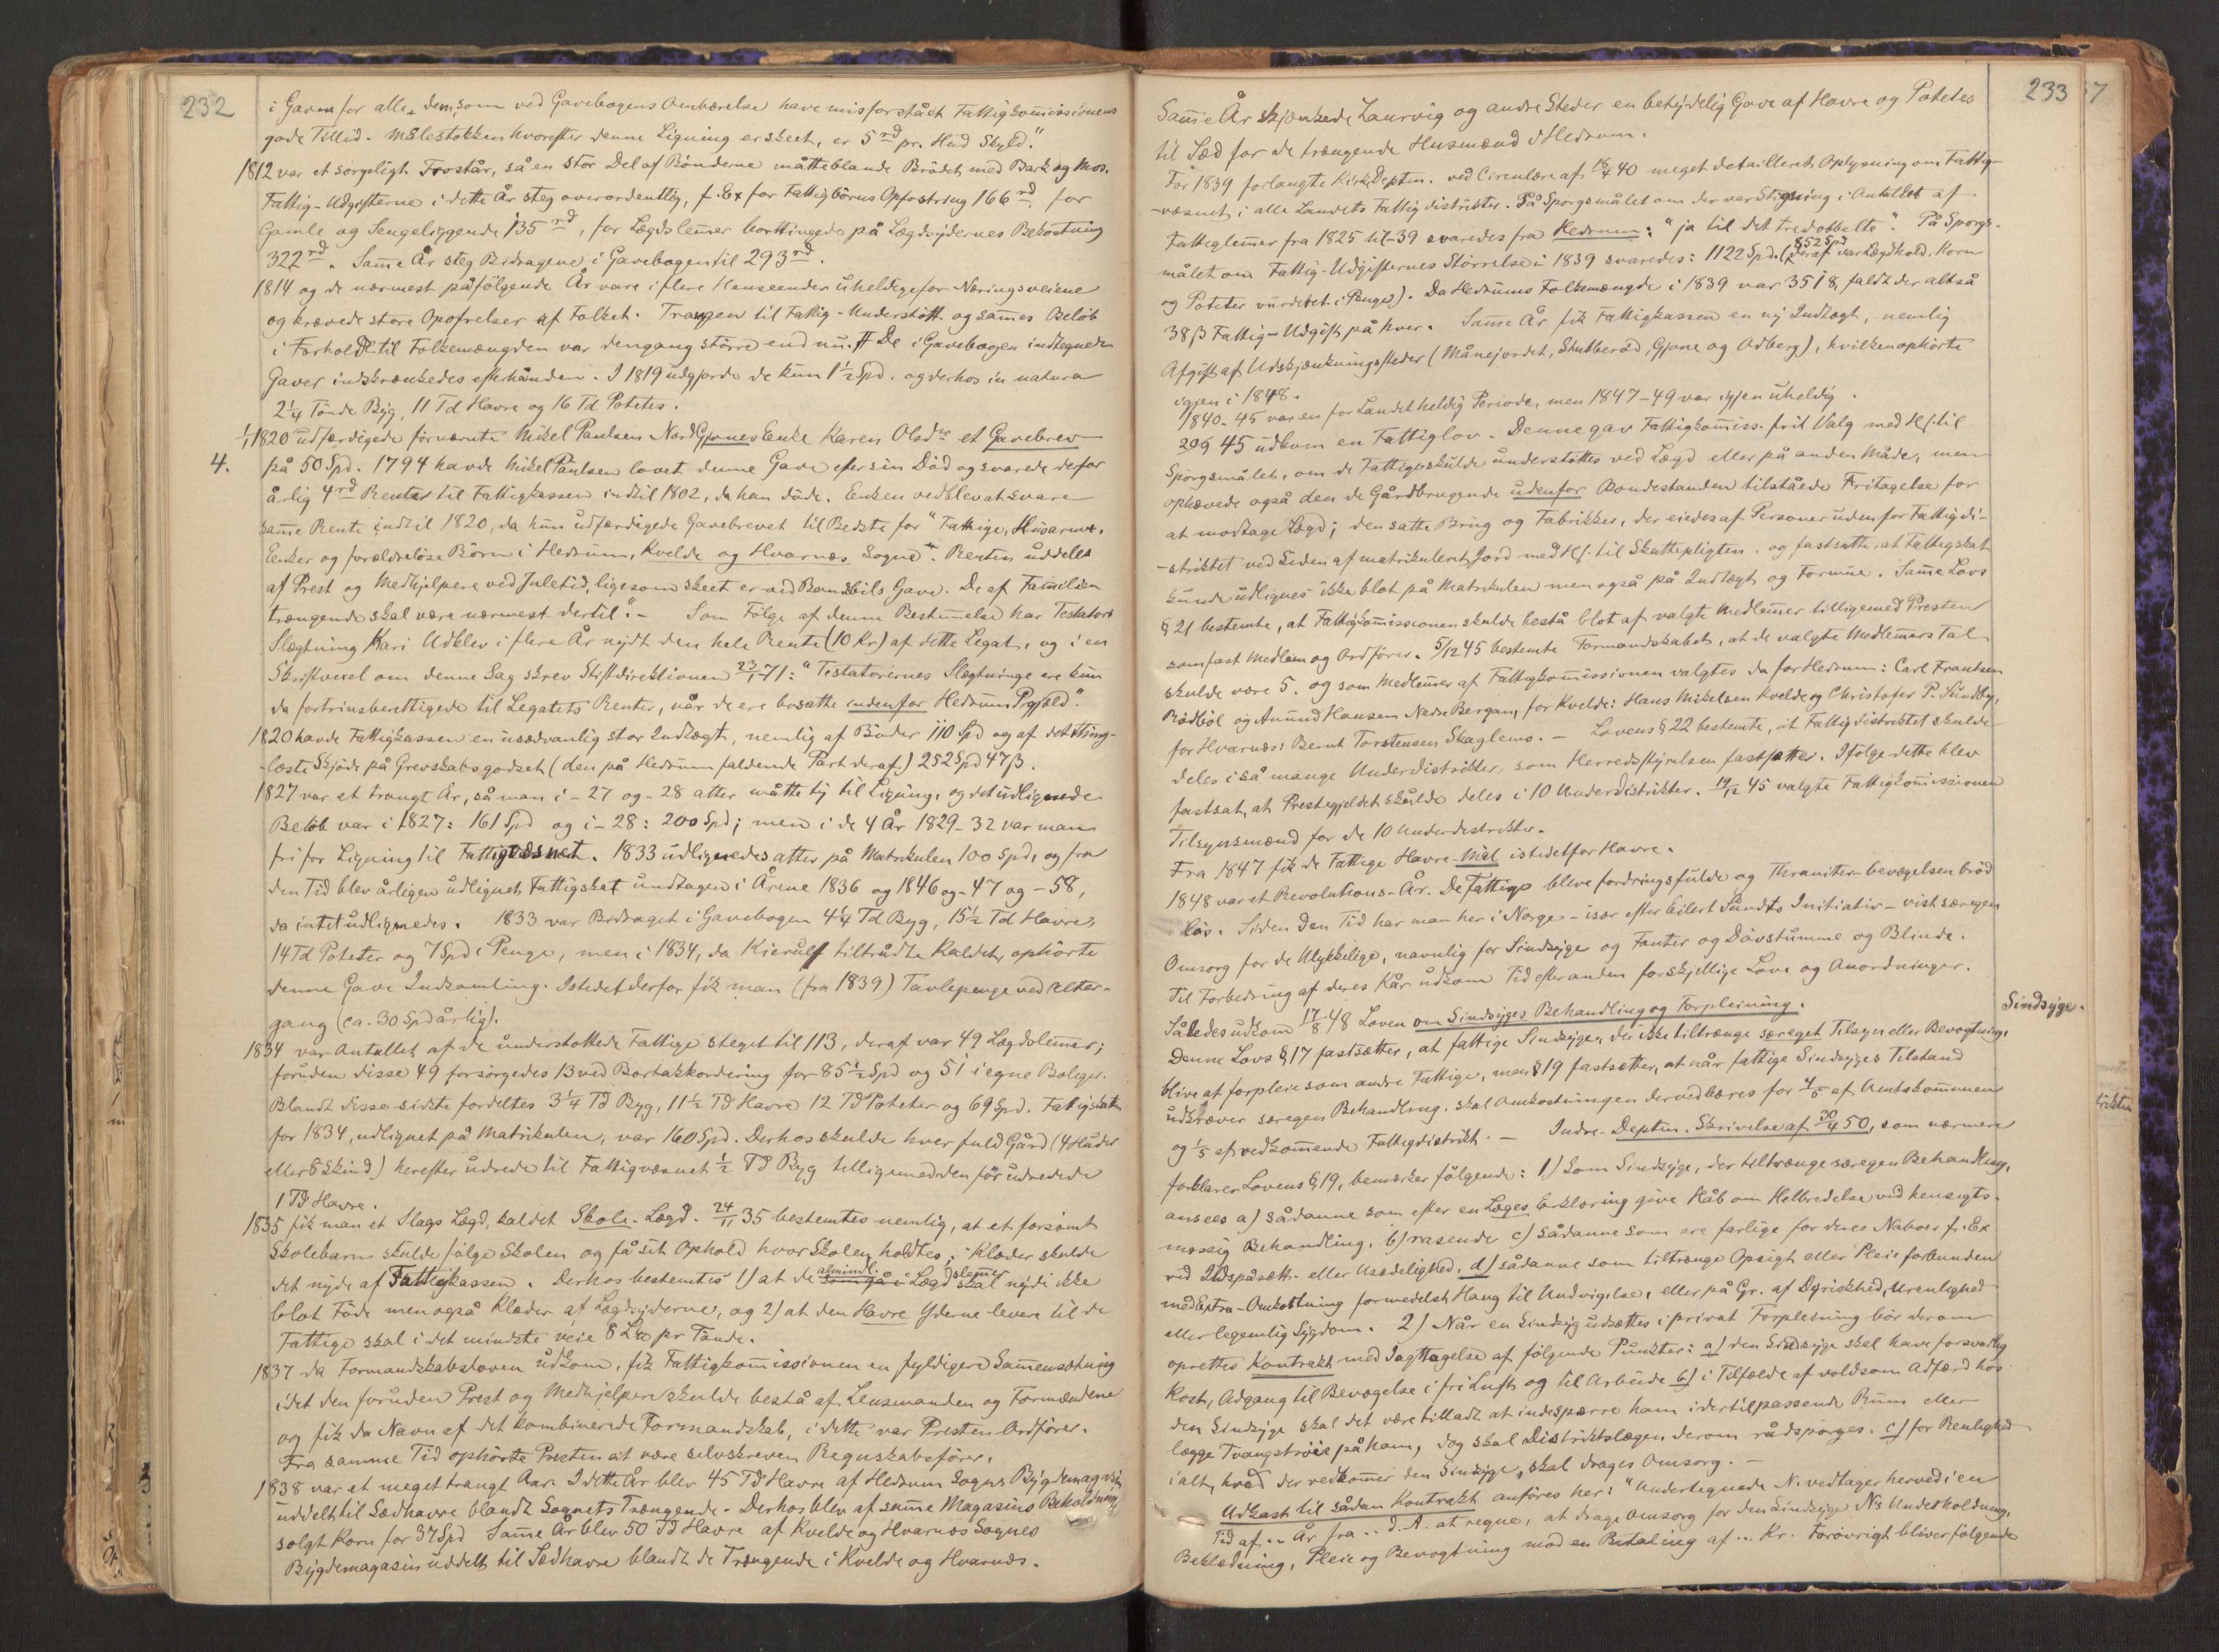 232
i Gaven for alle dem, som ved Gavebogens Ombærelse have misforstået Fattigkommissionens
gode Tillid. Målestokken hvorefter denne Ligning er skeet, er 5 rd pr. Hud Skyld."
1812 var et sørgeligt Frostår, så en stor Del af Bönderne måtte blande Brödet med Bark og Mos.
Fattig-Udgifterne i dette År steg overordentlig, f. Ex for Fattigbörns Opfostring 166 rd, for
Gamle og Sengeliggende 135 rd, for Lægdslemer borttingede på Lægdsydernes Bekostning
322 rd. Samme År steg Bidragene i Gavebogen til 293 rd.
1814 og de nærmest påfölgende År vare i flere Henseender uheldige for Næringsveiene
og krævede store Opofrelser af Folket. Trangen til Fattig-Understött. og sammes Belöb
i Forhold til Folkemængden var dengang större end nu. De i Gavebogen indtegnede
Gaver indskrænkedes efterhånden. I 1819 udgjorde de kun 1½ Spd. og derhos in natura
2¼ Tönde Byg, 11 Td Havre og 16 Td Potetes.
1/1 1820 udfærdigede förnævnte Mikel Paulsen Nord Gjones Enke Karen Olsdtr et Gavebrev
4. på 50 Spd. 1794 havde Mikel Paulsen lovet denne Gave efter sin Död og svarede derfor
årlig 4 rd Renter til Fattigkassen indtil 1802, da han döde. Enken vedblev at svare
samme Rente indtil 1820, da hun udfærdigede Gavebrevet til Bedste for "Fattige, Husarme,
Enker og forældrelöse Börn i Hedrum, Kvelde og Hvarnæs Sogne". Renten uddeles
af Prest og Medhjelpere ved Juletid, ligesom skeet er ved Gave. De af Familien
trængende skal være nærmest dertil". – Som Fölge af denne Bestemmelse har Testators
Slægtning Kari Odklev i flere År nydt den hele Rente (10 Kr) af dette Legat, og i en
Skriftvexel om denne Sag skrev Stiftdirektionen 23/1 71: "Testatorernes Slægtninge ere kun
da fortrinsberettigede til Legatets Renter, når de ere bosatte indenfor Hedrum Prgjeld".
1820 havde Fattigkassen en usædvanlig stor Indtægt, nemlig af Böder 110 Spd og af det tting-
-læste Skjöde på Grevskabsgodset (den på Hedrum faldende Part deraf) 252 Spd 47 β.
1827 var et trangt År, så man i -27 og -28 atter måtte ty til Ligning, og det udlignende
Belöb var i 1827: 161 Spd og i -28: 200 Spd; men i de 4 År 1829-32 var man
fri for Ligning til Fattigvæsnet. 1833 udlignedes atter på Matrikulen 100 Spd, og fra
den Tid blev årligen udlignet Fattigskat undtagen i Årene 1836 og 1846 og -47 og -58,
da intet udlignedes. 1833 var Bidraget i Gavebogen 4¼ Td Byg, 15½ Td Havre,
14 Td Poteter og 7 Spd i Penge, men i 1834, da Kierulf tiltrådte Kaldet, ophörte
denne Gave Indsamling. Istedet derfor fik man (fra 1839) Tavlepenge ved Alter-
gang (ca. 30 Spd årlig).
1834 var Antallet af de understöttede Fattige steget til 113, deraf var 49 Lægdslemer;
foruden disse 49 forsörgedes 13 ved Bortakkordering for 85½ Spd og 51 i egne Boliger.
Blandt disse sidste fordeltes 3¼ Td Byg, 11½ Td Havre 12 Td Poteter og 69 Spd. Fattigskatten
for 1834, udlignet på Matrikulen, var 160 Spd. Derhos skulde hver fuld Gård (4 Huder
eller 6 Skind) herefter udrede til Fattigvæsnet ½ Td Byg tilligemed den för udredede
1 Td Havre.
1835 fik man et Slags Lægd, kaldet Skole-Lægd. 24/11 35 bestemtes nemlig, at et forsömt
Skolebarn skulde fölge Skolen og få sit Ophold hvor Skolen holdtes; Klæder skulde
det nyde af Fattigkassen. Derhos bestemtes 1) at de almindl. Lægdslemer skal nyde ikke
blot Föde men også Klæder af Lægdsyderne, og 2) at den Havre Yderne levere til de
Fattige skal i det mindste veie 8 L℔ pr Tönde.
1837 da Formandskabsloven udkom, fik Fattigkommissionen en fyldigere Sammensætning
idet den foruden Prest og Medhjelpere skulde bestå af Lensmanden og Formændene
og fik da Navn af det kombinerede Formandskab, i dette var Presten Ordförer.
Fra samme Tid ophörte Presten at være selvskreven Regnskabsförer.
1838 var et meget trangt Aar. I dette År blev 45 Td Havre af Hedrum Sogns Bygdemagasin
uddelt til Sædhavre blandt Sognets Trængende. Derhos blev af samme Magasins Beholdning
solgt Korn for 37 Spd Samme År blev 50 Td Havre af Kvelde og Hvarnæs Sognes
Bygdemagasin uddelt til Sædhavre blandt de Trængende i Kvelde og Hvarnæs.
233
Samme År skjænkede Laurvig og andre Steder en betydelig Gave af Havre og Potetes
til Sæd for de trængende Husmænd i Hedrum.
For 1839 forlangte Kirk. Depten. ved Circulære af 18/4 40 meget detailleret Oplysning om Fattig-
-væsnet i alle Landets Fattigdistrikter. På Spörgsmålet om der var Stigning i Antallet af
Fattiglemer fra 1825 til -39 svaredes fra Hedrum: "ja til det tredobbelte". På Spörgs-
målet om Fattig-Udgifternes Störrelse i 1839 svaredes: 1122 Spd. (852 Spd deraf var Lægdhold, Korn
og Poteter vurderet i Penge). Da Hedrums Folkemængde i 1839 var 3518, faldt der altså
38 β Fattig-Udgift på hver. Samme År fik Fattigkassen en ny Indtægt, nemlig
Afgift af Udskjænkningssteder (Månejordet, Stutberöd, Gjone og Odberg), hvilken ophörte
igjen i 1848.
1840-45 var en for Landet heldig Periode, men 1847-49 var igjen uheldig.
20/9 45 udkom en Fattiglov. Denne gav Fattigkommiss. frit Valg med Hs. til
Spörgsmålet, om de Fattige skulde understöttes ved Lægd eller på anden Måde, men
ophævede også den de Gårdbrugende udenfor Bondestanden tilståede Fritagelse for
at modtage Lægd; den satte Brug og Fabrikker, der eiedes af Personer udenfor Fattigdi-
-striktet ved Siden af matrikuleret Jord med Hs. til Skattepligten. og fastsatte, at Fattigskat
kunde udlignes ikke blot på Matrikulen men også på Indtægt og Formue. Samme Lovs
§ 21 bestemte, at Fattigkommissionen skulde bestå blot af valgte Medlemmer tilligemed Presten
som fast Medlem og Ordförer. 5/12 45 bestemte Formandskabet, at de valgte Medlemmers Tal
skulde være 5. og som Medlemmer af Fattigkommissionen valgtes da for Hedrum: Carl Frantsen
Rödböl og Amund Hansen Nedre Bergan, for Kvelde: Hans Mikelsen Kvelde og Christofer P. Sundby,
for Hvarnæs: Bernt Torstensen Skaglemo. – Lovens § 22 bestemte, at Fattigdistriktet skulde
deles i så mange Underdistrikter, som Herredsstyrelsen fastsatter. Ifölge dette blev
fastsat, at Prestegjeldet skulde deles i 10 Underdistrikter. 19/12 45 valgte Fattigkommissionen
Tilsynsmænd for de 10 Underdistrikter.
Fra 1847 fik de Fattige Havre-Mel istedetfor Havre.
1848 var et Revolutions-År. De Fattige bleve fordringsfulde og Thraniter-bevægelsen bröd
lös. Siden den Tid har man her i Norge – især efter Eilert Sundts Initiativ – vist særegen
Omsorg for de Ulykkelige, navnlig for Sindsyge og Fanter og Dövstumme og Blinde.
Til Forbedring af deres Kår udkom Tid efter anden forskjellige Love og Anordninger.
Sindsyge.
Således udkom 17/8 48 Loven om Sindsyges Behandling og Forpleining.
Denne Lovs § 17 fastsætter, at fattige Sindsyge, der ikke tiltrænge særeget Tilsyn eller Bevogtning,
blive at forpleie som andre Fattige, men § 19 fastsætter, at når fattige Sindsyges Tilstand
udkræver særegen Behandling, skal Omkostningen derved bæres for 4/5 af Amtskommunen
og 1/5 af vedkommende Fattigdistrikt. – Indre-Deptm. Skrivelse af 30/4 50, som nærmere
forklarer Lovens § 19, bemærker fölgende: 1) Som Sindsyge, der tiltrænge særegen Behandling,
ansees a) sådanne som efter en Læges Erklæring give Håb om Helbredelse ved hensigts-
mæssig Behandling, b) rasende c) sådanne som ere farlige for deres Naboer f. Ex
ved Ildspåsætt. eller Usædelighed, d) sådanne som tiltrænge Opsigt eller Pleie forbunden
med Extra-Omkostning formedelst Hang til Undvigelse, eller på Gr. af Dyriskhed, Urenlighed
eller legemlig Sygdom. 2) Når en Sindsyg udsættes i privat Forpleining bör derom
oprettes Kontrakt med Iagttagelse af fölgende Punkter: a) den Sindsyge skal have forsvarlig
Kost, Adgang til Bevægelse i fri Luft og til Arbeide b) i Tilfælde af voldsom Adfærd hos
den Sindsyge skal det være tilladt at indespærre ham i dertil passende Rum eller
lægge Tvangströie på ham, dog skal Distriktslægen derom rådspörges. c) for Renlighed
i alt, hvad der vedkommer den Sindsyge, skal drages Omsorg. –
Udkast til sådan Kontrakt anföres her: "Undertegnede N. vedtager herved i en
Tid af .. År fra .. d. A. at regne, at drage Omsorg for den Sindsyge Ns Underholdning,
Beklædning, Pleie og Bevogtning mod en Betaling af ... Kr. Forövrigt bliver fölgende